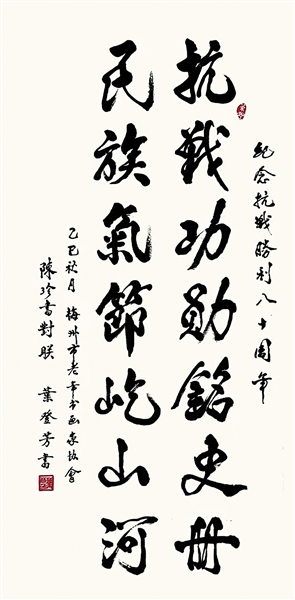 紀念抗戰勝利八十周年
抗戰功勛銘史冊
民族氣節屹山河
乙巳秋月 梅州市老年书画家协會
陳珍書對联 葉登芳書